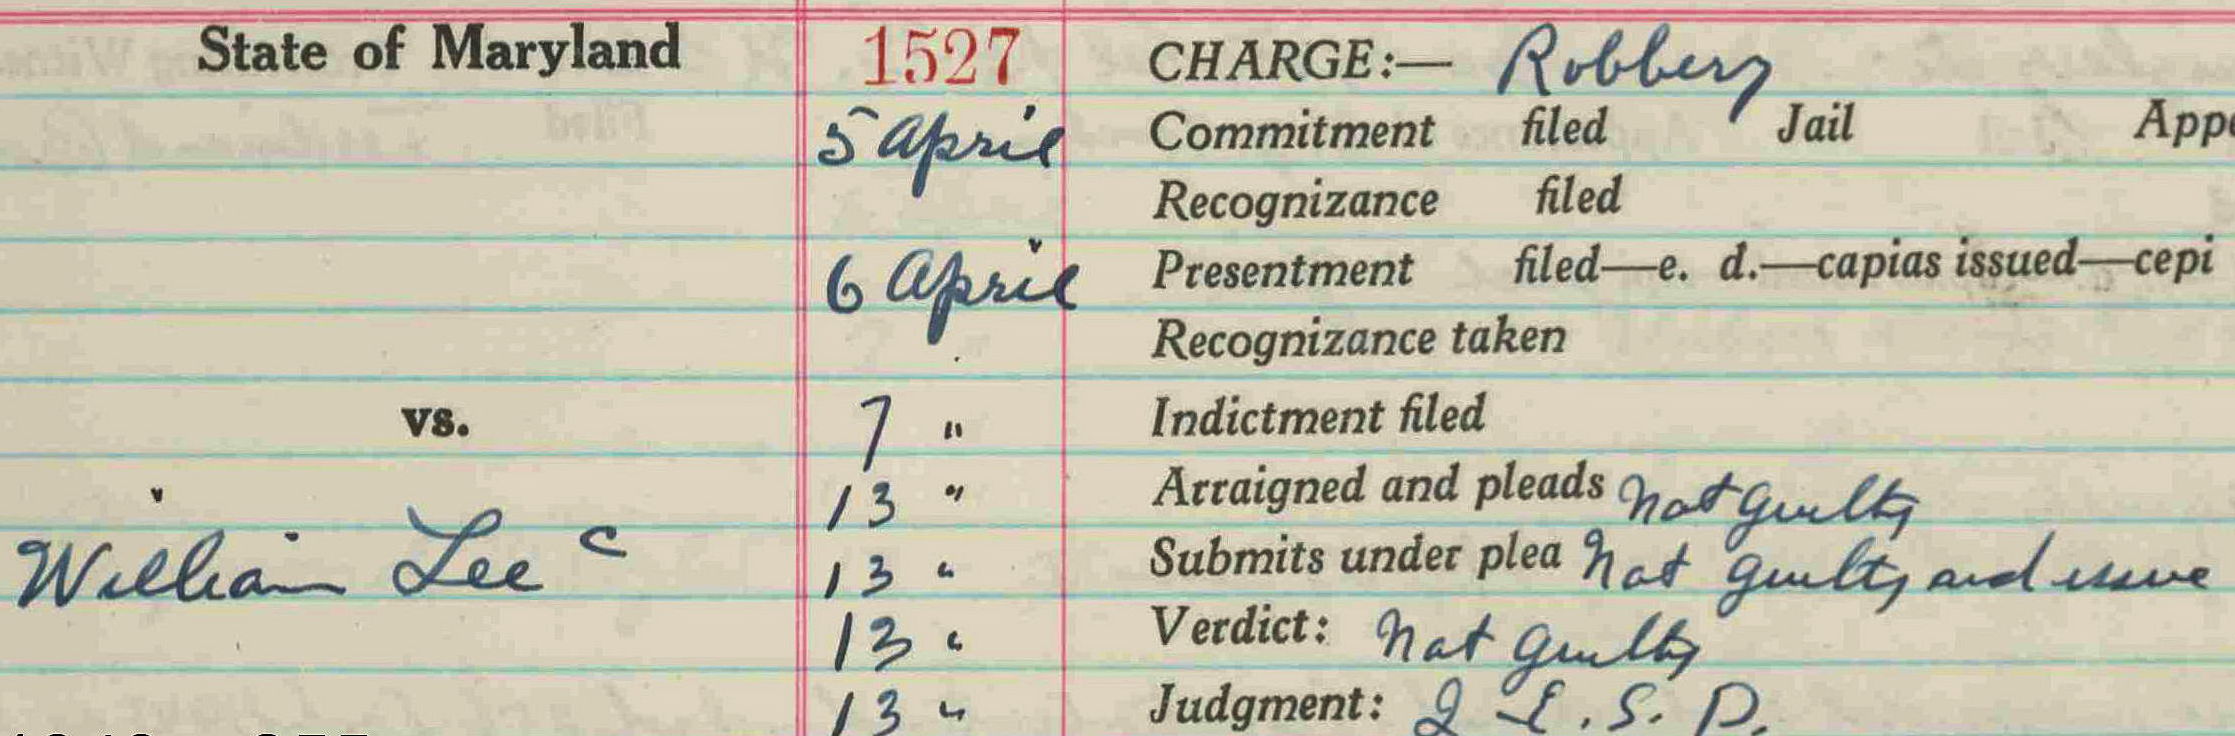 State of Maryland 1527 CHARGE:— Robbery
5 April Commitment filed Jail Appe
Recognizance filed
6 April Presentment filed—e. d.—capias issued—cepi
Recognizance taken
vs. 7 " Indictment filed
13 " Arraigned and pleads not guilty
William Lee c 13 " Submits under plea not guilty and issue
13 " Verdict: not guilty
13 " Judgment: S. D.